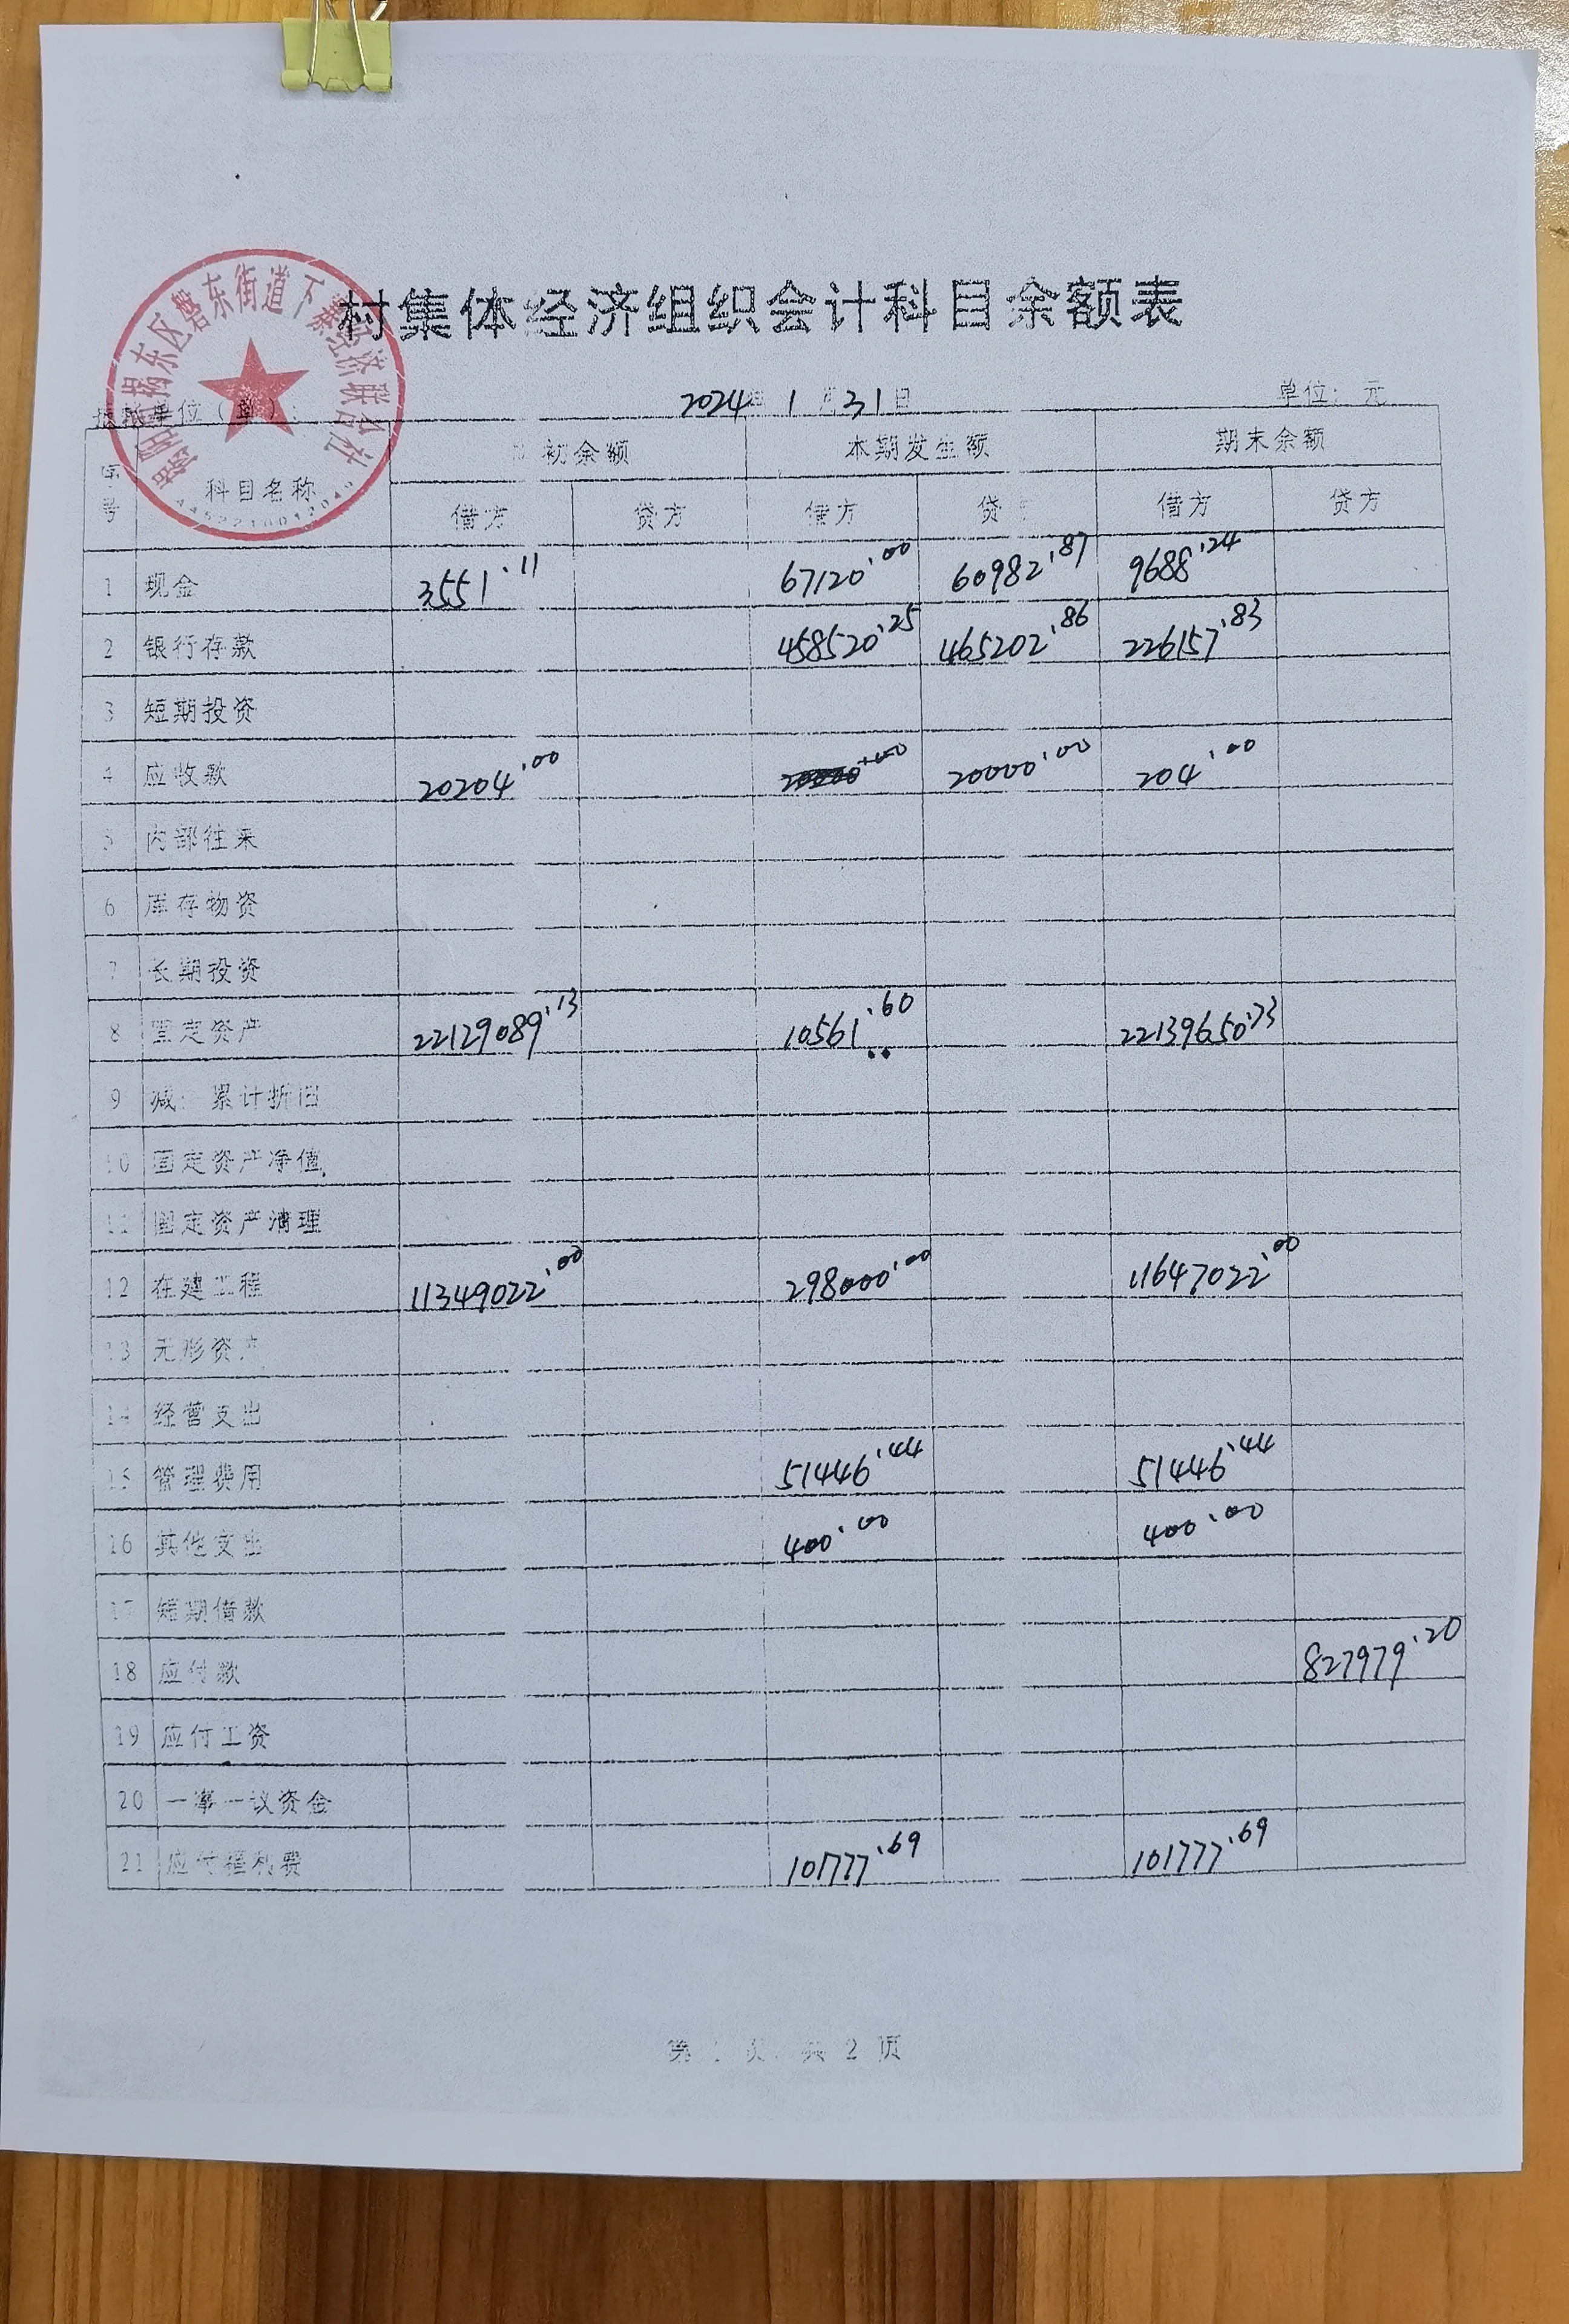 村集体经济组织会计科目余额表
2024年1月31日 单位：元
序号 科目名称 初余额 本期发生额 期末余额
借方 贷方 借方 贷 借方 贷方
1 现金 3551.11 67120.00 60982.87 9688.24
2 银行存款 458520.25 465202.86 226157.83
3 短期投资
4 应收款 20204.00 20000.00 204.00
5 内部往来
6 库存物资
7 长期投资
8 固定资产 22129089.13 10561.60 22139650.73
9 减：累计折旧
10 固定资产净值
11 固定资产清理
12 在建工程 11349022.00 298000.00 11647022.00
13 无形资产
14 经营支出
15 管理费用 51446.44 51446.44
16 其他支出 400.00 400.00
17 短期借款
18 应付款 827979.20
19 应付工资
20 一事一议资金
21 应付福利费 101777.69 101777.69
第1页，共2页